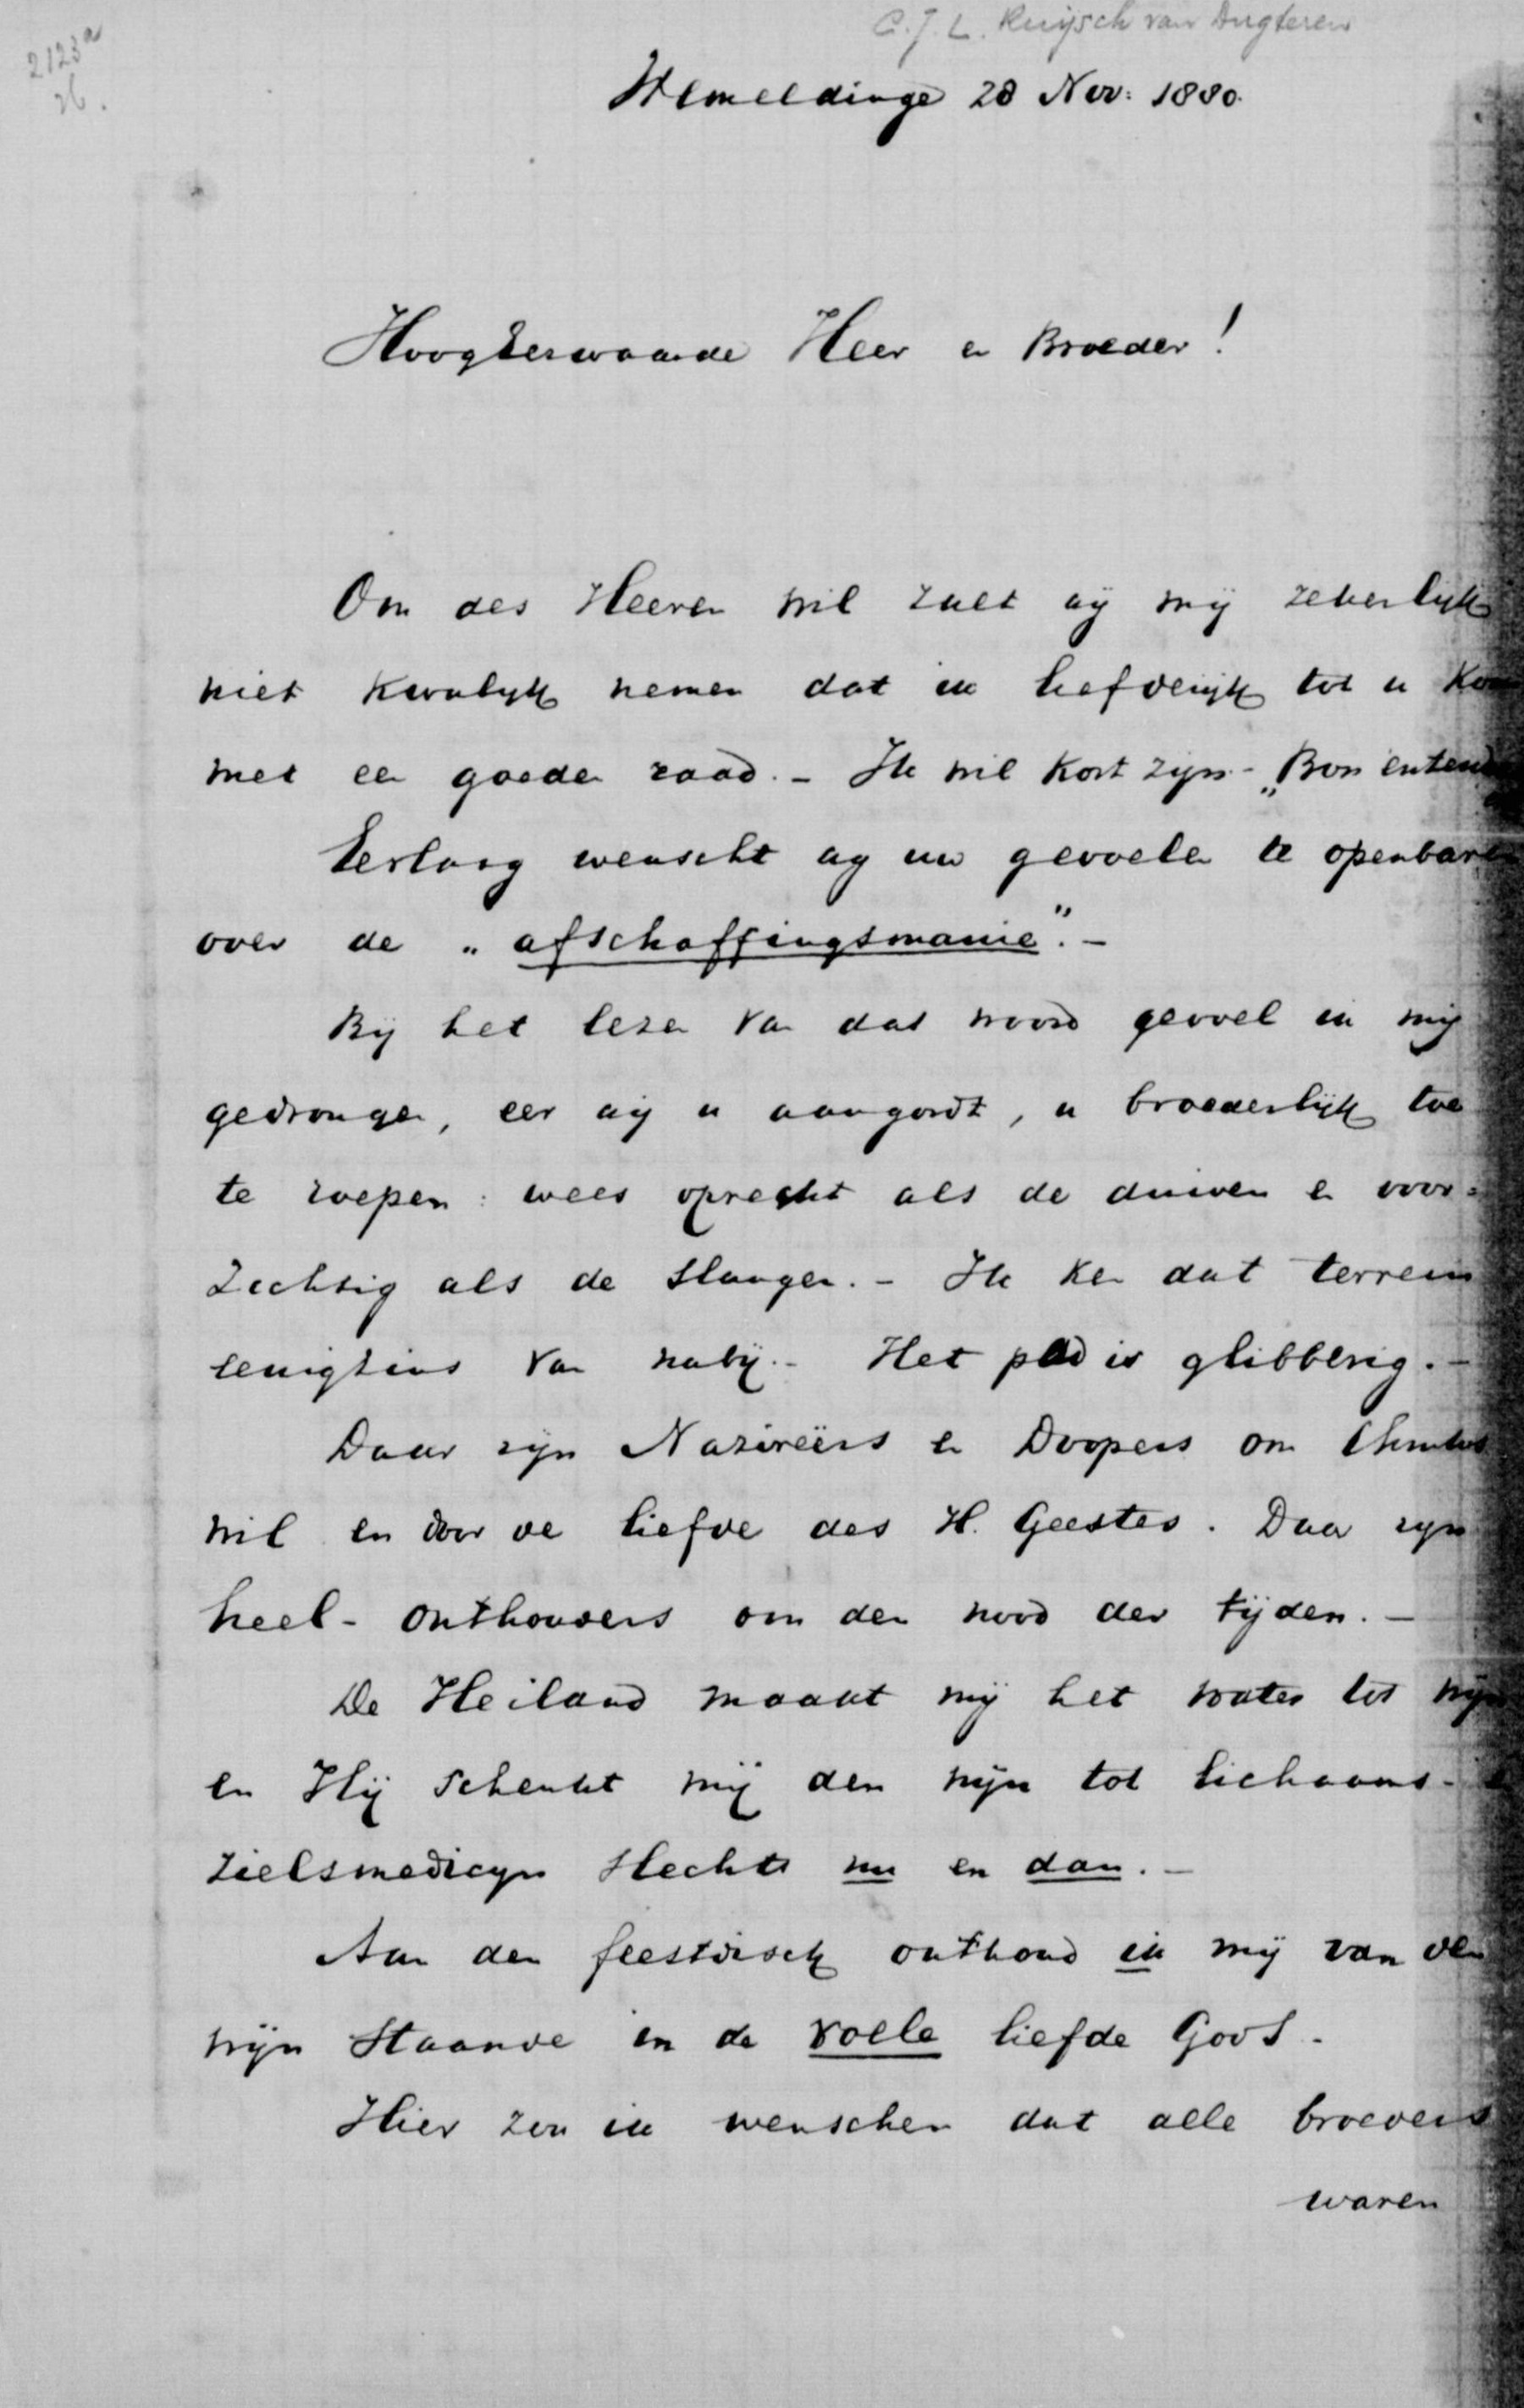 C. J. L. Ruijsch van Dugteren
2123a
26.
Wemeldinge 28 Nov: 1880.
HoogEerwaarde Heer en Broeder!
Om des Heeren wil zult gij mij zekerlijk
niet kwalijk nemen dat ik liefderijk tot u kom
met een goeden raad. - Ik wil kort zijn - „Bon entend
Eerlang wenscht gij uw gevoelen te openbaren
over de „afschaffingsmanie". -
Bij het lezen van dat woord gevoel ik mij
gedrongen, eer gij u aangordt, u broederlijk toe
te roepen: wees oprecht als de duiven en voor=
zichtig als de slangen. - Ik ken dat terrein
eenigzins van nabij. - Het pad is glibberig. -
Daar zijn Nazireërs en Doopers om Christus
wil en door de liefde des H. Geestes. Daar zijn
heel-onthouders om den nood der tijden. -
De Heiland maakt mij het water tot wijn
en Hij schenkt mij den wijn tot lichaams- en
zielsmedicijn slechts nu en dan. -
Aan den feestdisch onthoud ik mij van den
wijn staande in de volle liefde Gods.
Hier zou ik wenschen dat alle broeders
waren